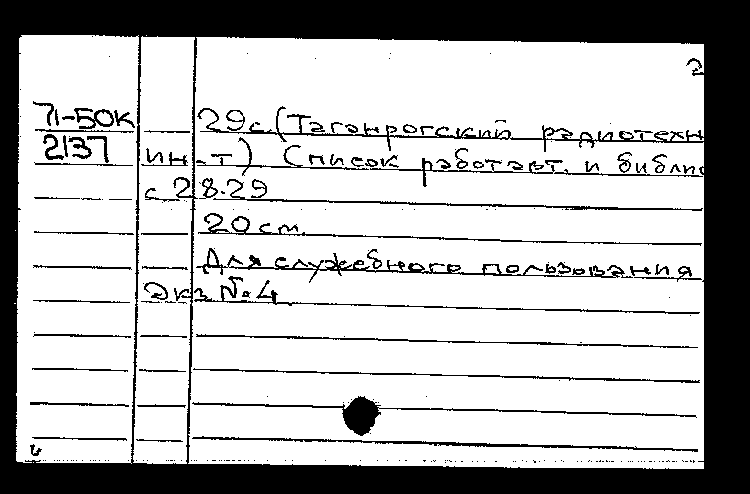 2
71-50к
2137
29с. (Таганрогский радиотехн
ин-т) Список работ авт. и библио
с 28-29
20 см.
Для служебного пользования
Экз № 4